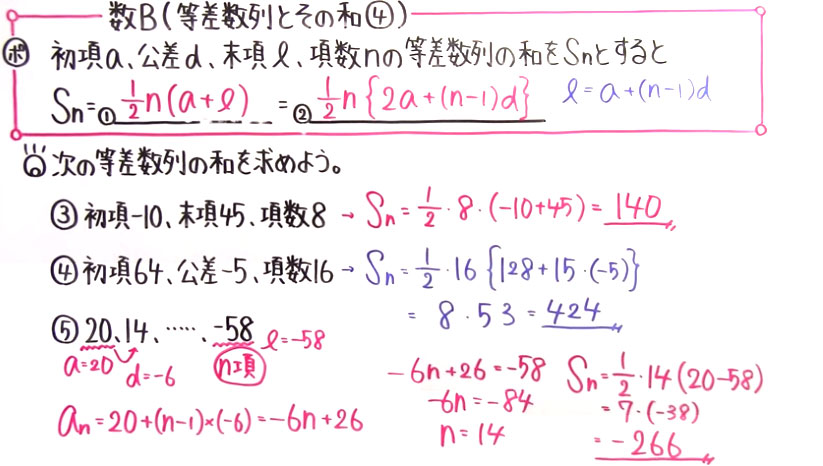 数B(等差数列とその和④)
ポ 初項a、公差d、末項l、項数nの等差数列の和をSnとすると
Sn=①1/2n(a+l) =②1/2n{2a+(n-1)d} l=a+(n-1)d
次の等差数列の和を求めよう。
③初項-10、末項45、項数8 → Sn=1/2・8・(-10+45)=140
④初項64、公差-5、項数16 → Sn=1/2・16{128+15・(-5)}
=8・53=424
⑤20、14、……、-58 l=-58
a=20 d=-6 n項
an=20+(n-1)×(-6)=-6n+26
-6n+26=-58
-6n=-84
n=14
Sn=1/2・14(20-58)
=7・(-38)
=-266